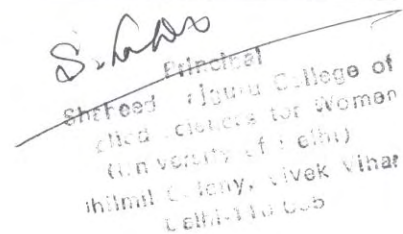 Principal
Shaheed College of
Sciences for Women
(University of Delhi)
Jhilmil Colony, Vivek Vihar
Delhi-110